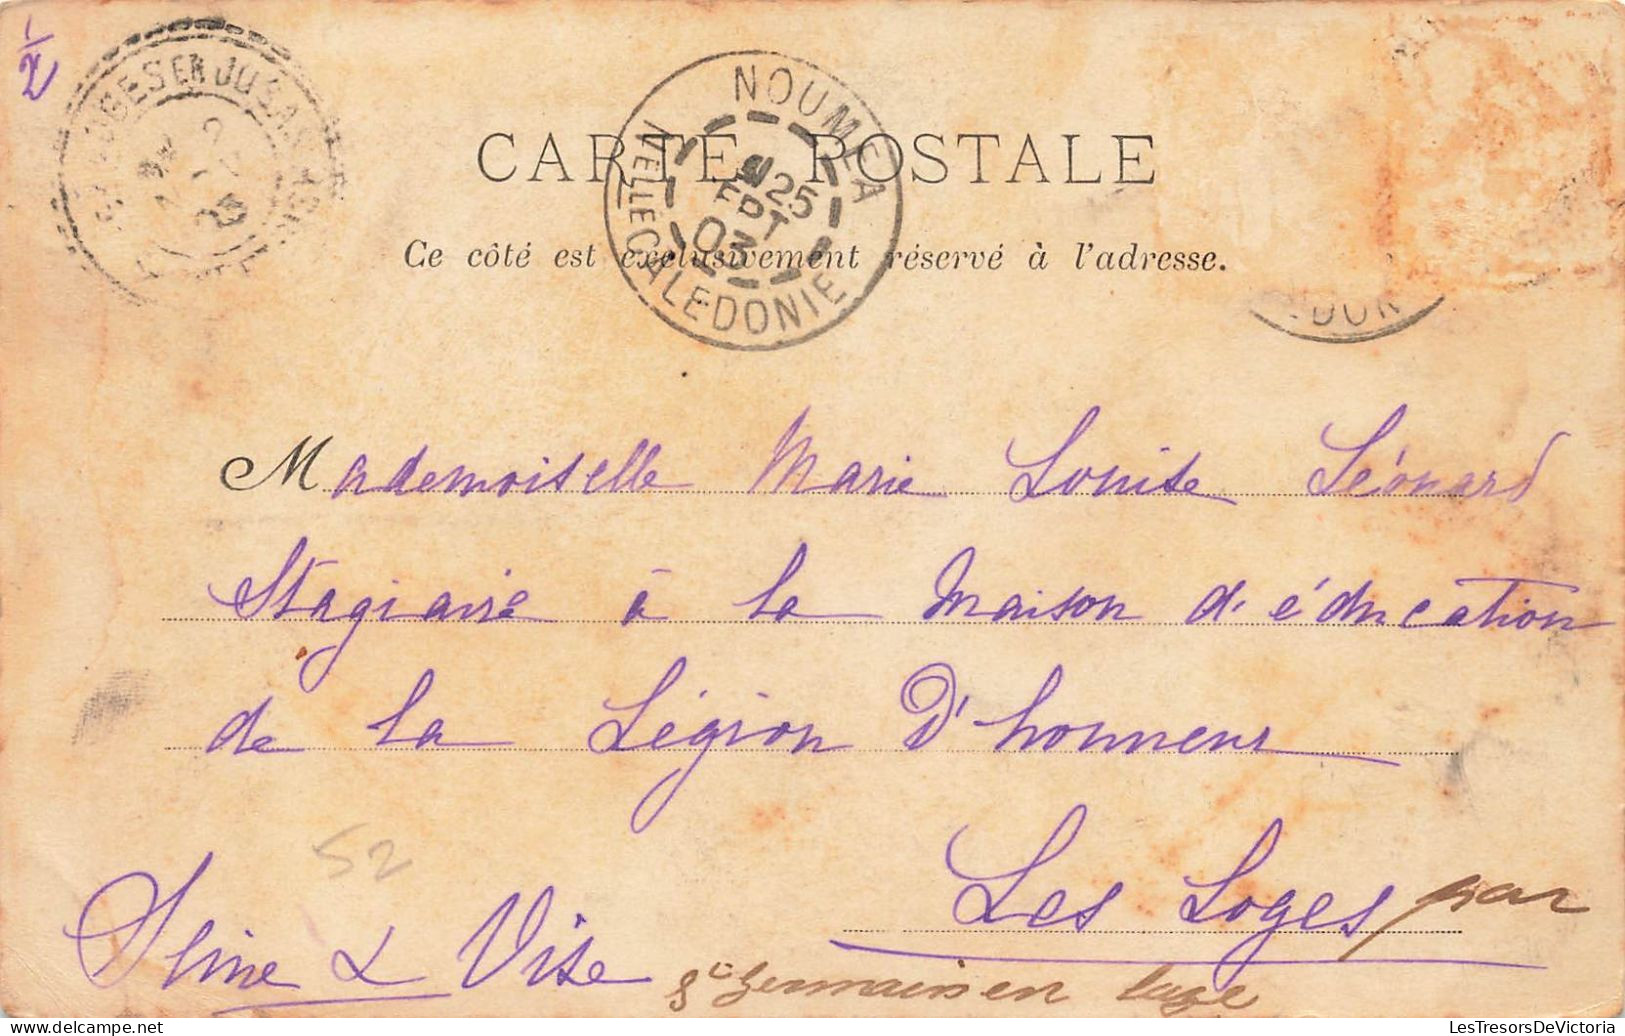 2
NOUMEA
25
SEPT
03
NELLE CALEDONIE
CARTE POSTALE
Ce côté est exclusivement réservé à l'adresse.
Mademoiselle Marie Louise Léonard
Stagiaire à la Maison d'éducation
de la Légion D'honneur
52
Les Loges par
Seine & Oise
St Germain en Laye
LesTresorsDeVictoria